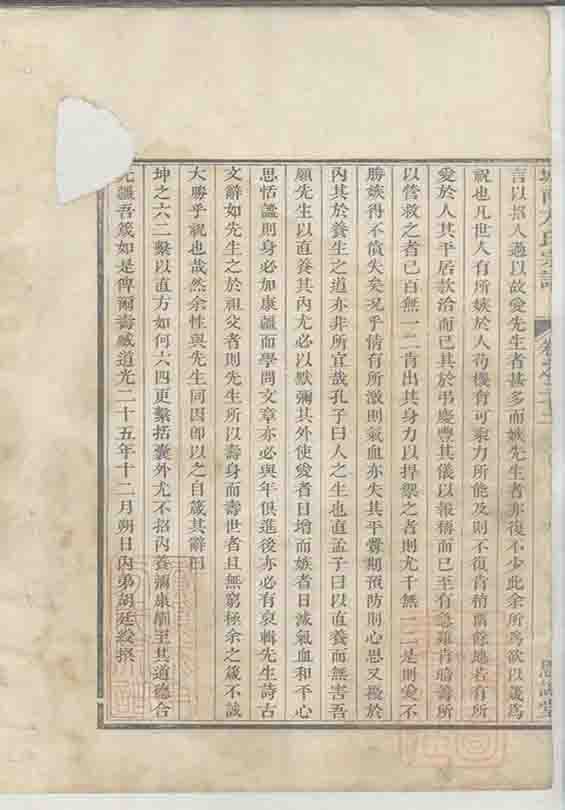 方氏宗譜
言以招人過以故愛先生者甚多而嫉先生者亦復不少此余所為欲以箴為
祝也凡世人有所嫉於人苟機有可乘力所能及則不復肯稍留餘地若有所
愛於人其平居款洽而已其於弔慶豐其儀以報稱而已至有急難肯謄善所
以營救之者已百無一二肯出其身力以捍禦之者則尤千無一二是則愛不
勝嫉得不償失矣况乎情有所激則氣血亦失其平釁期預防則心思又擾於
內其於養生之道亦非所宜哉孔子曰人之生也直孟子曰以直養而無害吾
願先生以直養其內尤必以默彌其外使愛者日增而嫉者日減氣血和平心
思恬謐則身必加康彊而學問文章亦必與年俱進後亦必有裒輯先生詩古
文辭如先生之於祖父者則先生所以壽身而壽世者且無窮極余之箴不誠
大勝乎祝也哉然余性與先生同因即以之自箴其辭曰
坤之六二繫以直方如何六四更繫括囊外尤不招內養彌康剛至其道德合
无疆吾箴如是俾爾壽臧道光二十五年十二月朔日內弟胡廷綬撰